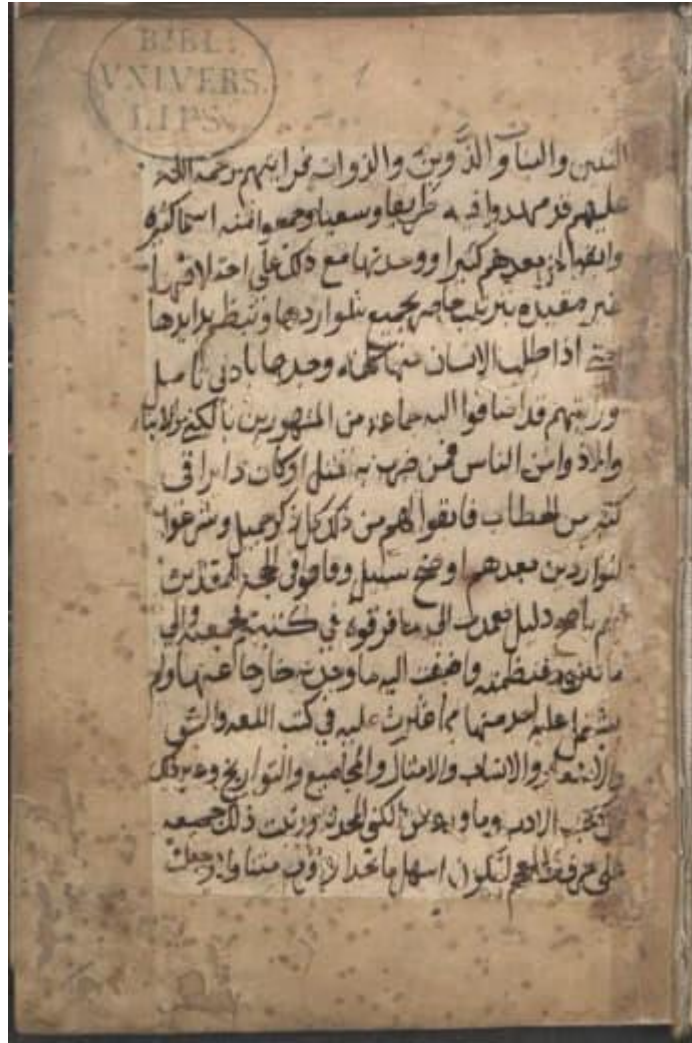 BIBL.
VNIVERS.
LIPS.
البنين والبنات والذوين والذوات فرايتهم رحمة الله
عليهم قد مهدوا فيه طريقا وسعيا وجمعوا منه اسما كثيره
بعدهم كثيرا ووجدتها مع ذلك على
غير مقيده بترتيب حاصر يجمع شواردها وينظم
اذا طلب الانسان منها وجدها بادنى تامل
ورايتهم قد اضافوا اليه جماعه من المشهورين بالكنى
الناس فمن ضرب به مثل او كان دايرا في
كثير من الخطاب فابقوا لهم من ذلك كل ذكر جميل وشرعوا
للواردين بعدهم اوضح سبيل وقاموا في الحجة
دليل فعمدت الى ما فرقوه في كتبهم فجمعته والى
فنظمته واضفت اليه ما وجدت خارجا عنها ولم
عليه احد منها مما عثرت عليه في كتب اللغه والسير
والاشعار والانساب والامثال والمجاميع والتواريخ وغير ذلك
من كتب الادب وما الكنى المحدثه ورتبت ذلك جميعه
على حروف المعجم ليكون اسهل ماخذا واقرب متناولا وجعلت